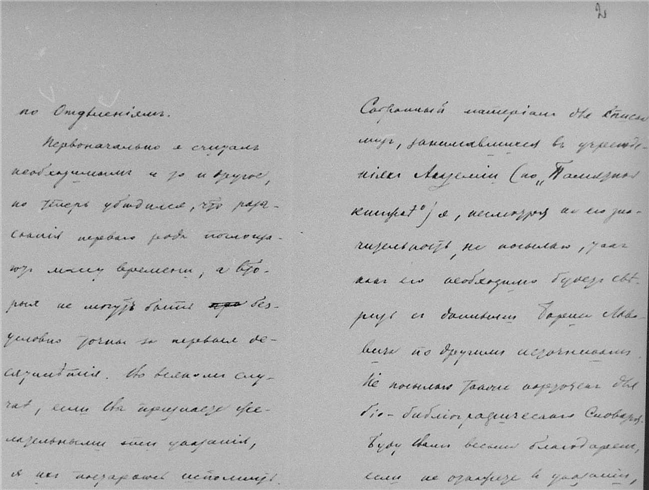 по Отдѣленіямъ.
Первоначально я считалъ
необходимымъ и то и другое,
но теперь убѣдился, что разы-
сканія перваго рода поглоща-
ютъ массу времени, а вто-
рыя не могутъ быть без-
условно точны за первыя де-
сятилѣтія. Во всякомъ слу-
чаѣ, если Вы признаете же-
лательными эти указанія,
я ихъ постараюсь исполнить.
Собранный матеріалъ для списка
лицъ, занимавшихся въ учрежде-
ніяхъ Академіи (по „Памятнымъ
я, несмотря на его зна-
чительность, не посылаю, такъ
какъ его необходимо будетъ свѣ-
рить съ данными Бориса Льво-
вича по другимъ источникамъ.
Не посылаю также карточекъ для
біо-библіографическаго Словаря.
Буду Вамъ весьма благодаренъ,
если не откажете въ указаніи,